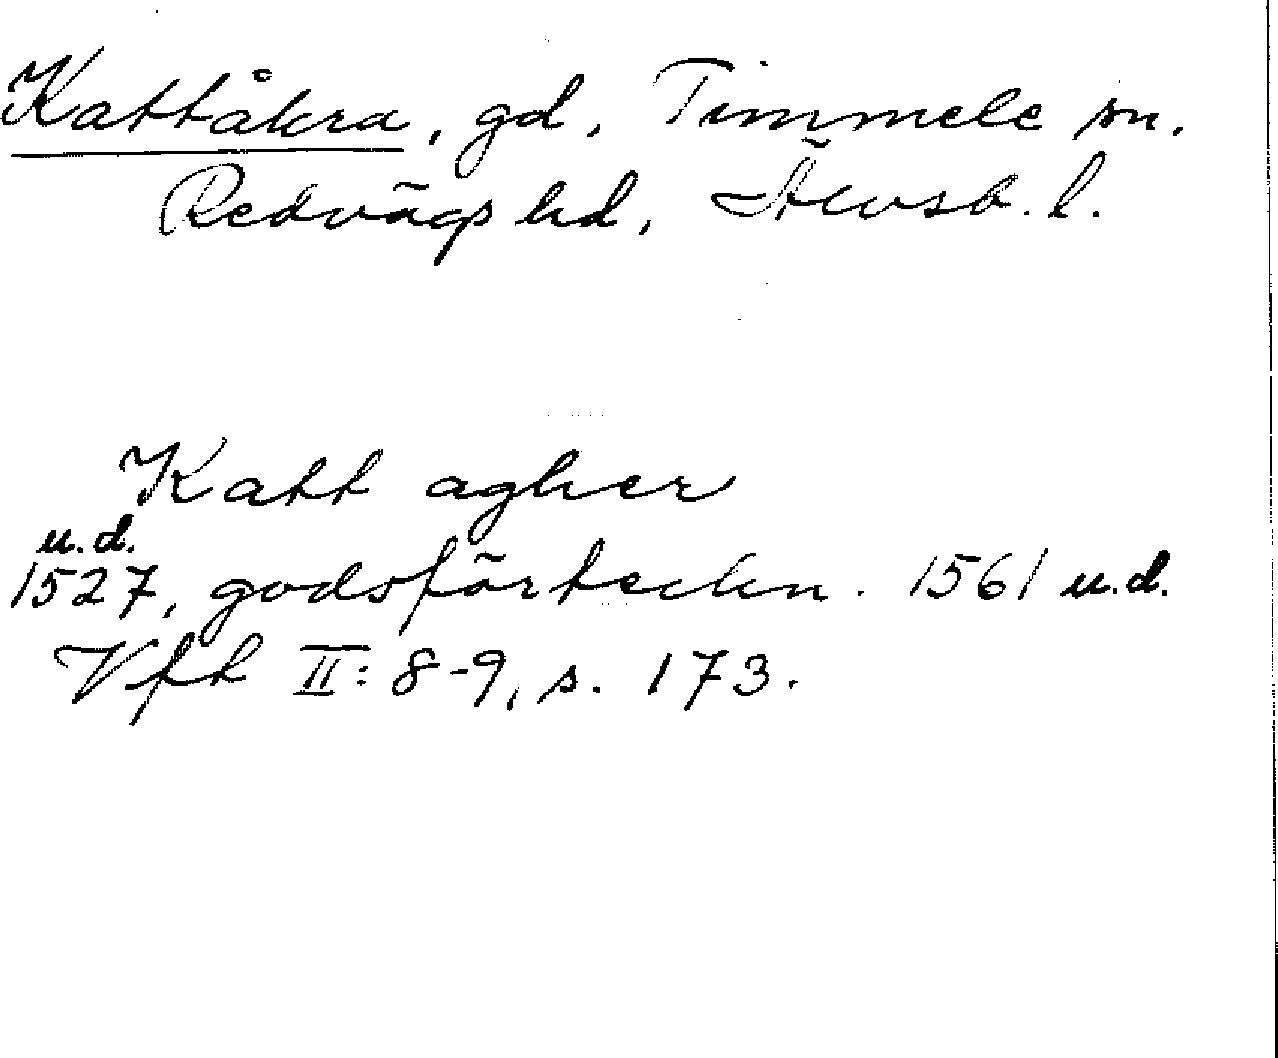 Kattåkra, gd, Timmele sn.
Redvägs hd, Älvsb. l.
Katt agher
u.d.
1527, godsförteckn. 1561 u.d.
Vfh II: 8-9, s. 173.